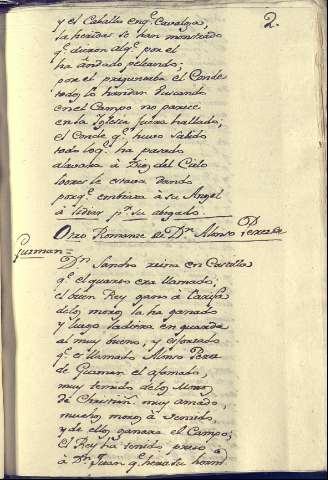 2.
y el Caballo en q.e Cavalga,
las heridas se han mostrado
q.e dieron al q.e por el
ha andado peleando;
por el preguntaba el Conde
todos lo havian buscando
en el Campo no parece
en la Iglesia fuera hallado;
el Conde q.e huvo sabido
todo lo q.e ha pasado
alavava à Dios del Cielo
loores le estava dando
porq.e embiara à su Angel
à lidiar p.r su abogado.
Otro Romanze de D.n Alonso Perez de
Guzman =
D.n Sancho reina en Castilla
q.e el quarto era llamado;
el buen Rey gano à Tarifa
de los moros la ha ganado
y luego la diera en guarda
al muy bueno, y esforzado
q.e es llamado Alonso Perez
de Guzman el afamado,
muy temido de los Moros
de Christian.s muy amado,
muchos moros à
y de ellos ganara el Campo;
el Rey ha tenido preso
à D.n Juan q.e hera su herm.o